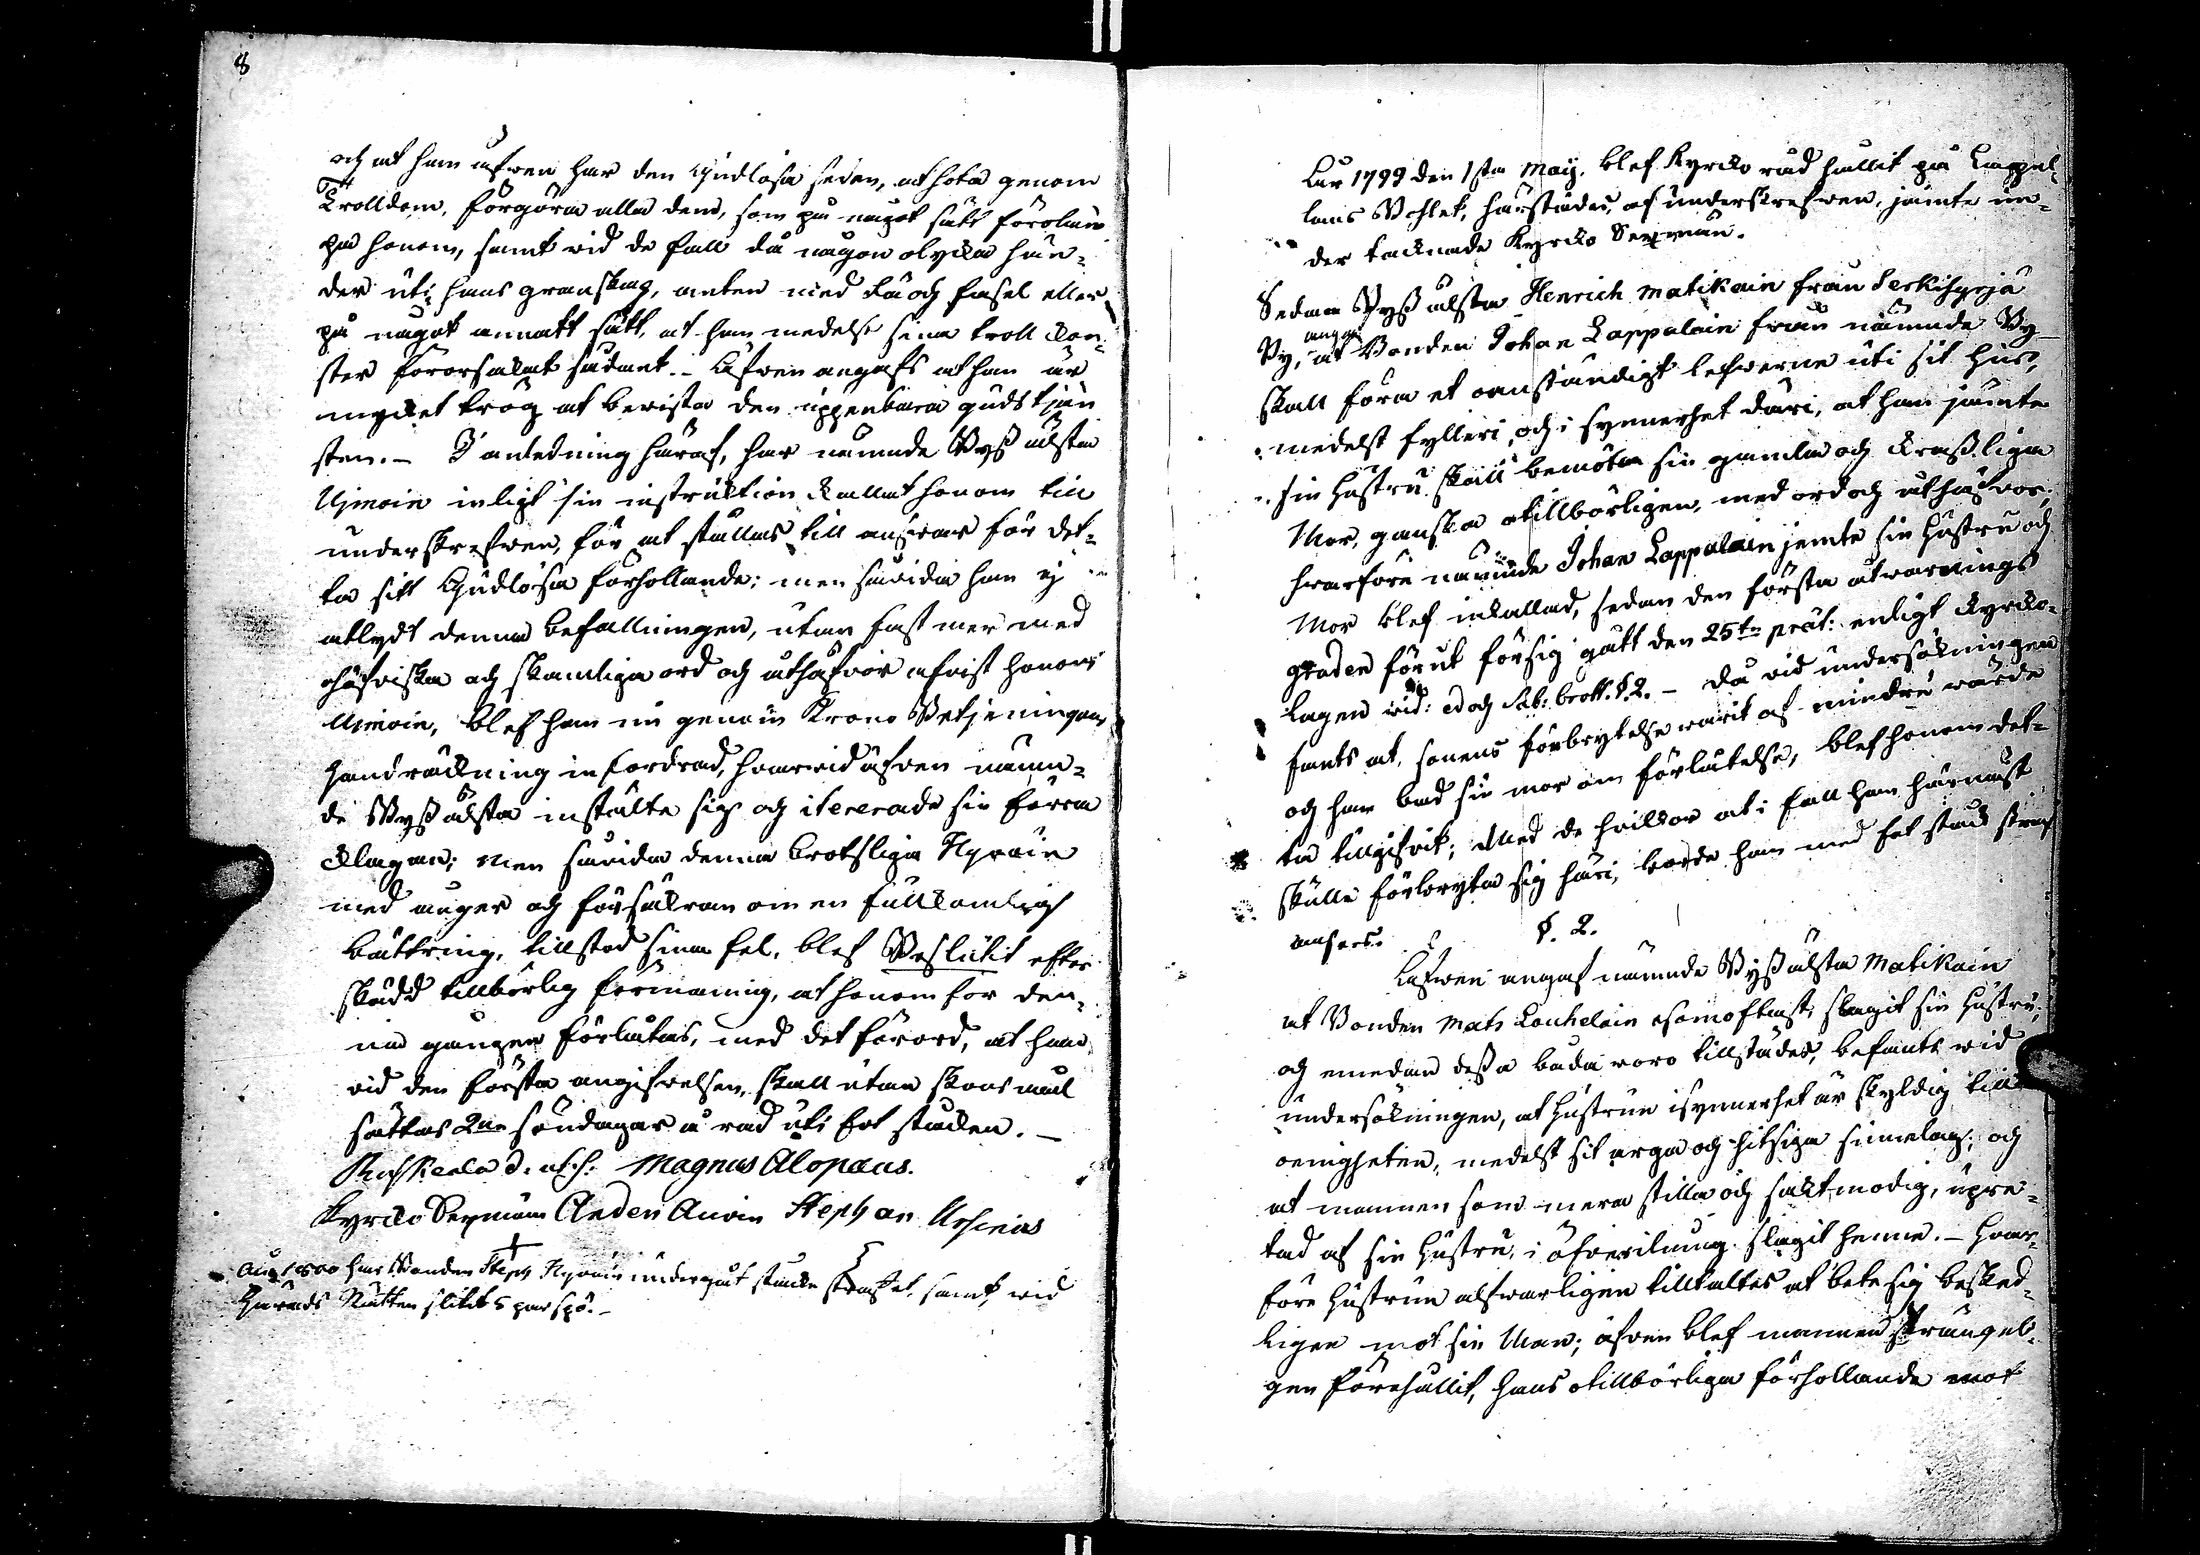 8
och at han äfwen har den gudlösa seden, at hota genom
Trolldom, förgöra alla dem, som på något sätt föroläm¬
pa honom, samt wid de fall då någon olycka hän¬
der uti hans granskap, anten med Fä och fasel eller
på något annatt sätt, at han medelst sina troll kon¬
ster förorsakat sådant. - Äfwen angafs at han är
mycket trög at bevista den uppenbara gudstjän
sten. - I anledning häraf, har nämnde Byß älsta
Ujmoin enligt sin instruktion kallat honom till
underskrefwen, för at ställas till answar för det¬
ta sitt Gudlösa förhollande; men såvida han ej
atlydt denna befallningen, utan fast mer med
ohöfviska och skamliga ord och uthäfvor afvist honom
Ujmoin, blef han nu genom Krono Betjeningens
handräckning infordrad, hvarvid äfven nämn¬
de Byß älsta instälte sig och itererade sin förra
klagan; Men såvida denna brotsliga Hyväin
med ånger och försäkran om en fullkomlig
bättring, tillstod sina fel, blef Beslutit efter
skedd tillbörlig förmaning, at honom för den¬
na gången förlåtas, med det förord, at han
vid den första angifvelsen, skall utan skonsmål
sättas 2ne söndagar å rad uti fot stocken. -
Ruskeala d. ut s. Magnus Alopæus.
Kyrko Sexmän Anders Auvin Stephan Ursinus
Año 1800 har Bonden Steph Hyväin undergåt stocke straffet, samt wid
Härads Rätten slitit 5 par spö. -
Åhr 1799 den 1sta Maij. blef Kyrko råd hållit på Cappel¬
lans Bohlet, härstädes, af underskrefwen, jämte un¬
der tecknade Kyrko Sexmän.
Sedan Byß älsta Henrich Matikain från Särkisyrjä
By, angaf at Bonden Johan Lappalain från nämnde By
skall föra et oanständigt lefwerne uti sit hus,
medelst fylleri, och i synnerhet däri, at han jämte
sin hustru skall bemöta sin gamla och kraßliga
Mor, ganska otillbörligen, med ord och uthäfvor;
hvarföre nämnde Johan Lappalain jemte sin hustru och
Mor blef inkallad, sedan den första åtvarnings
graden förut försig gått den 25te præt: enligt kyrko¬
Lagen vid: ed och Sab: brott. §. 2. - Då vid undersökningen
fants at, sonens förbrytelse warit af mindre wärde
och han bad sin mor om förlåtelse, blef honom det¬
ta tillgifvit; Med de hvilkor at i fall han härnäst
skulle förbryta sig häri, borde han med fot stock straf
anses.
§. 2.
Äfwen angaf nämnde Byß älsta Matikain
at Bonden Mats Louhelain esomoftast slagit sin hustru,
och emedan deßa båda voro tillstädes, befants wid
undersökningen, at hustrun isynnerhet är skyldig till
oenigheten, medelst sit arga och hitsiga sinnelag; och
at mannen som mera stilla och saktmodig, upre¬
tad af sin hustru, i öfverilning slagit henne. - Hvar¬
före hustrun alfwarligen tilltaltes at bete sig besked¬
ligen mot sin Man; äfven blef mannen strängeli¬
gen förehållit, hans otillbörliga förhollande mot